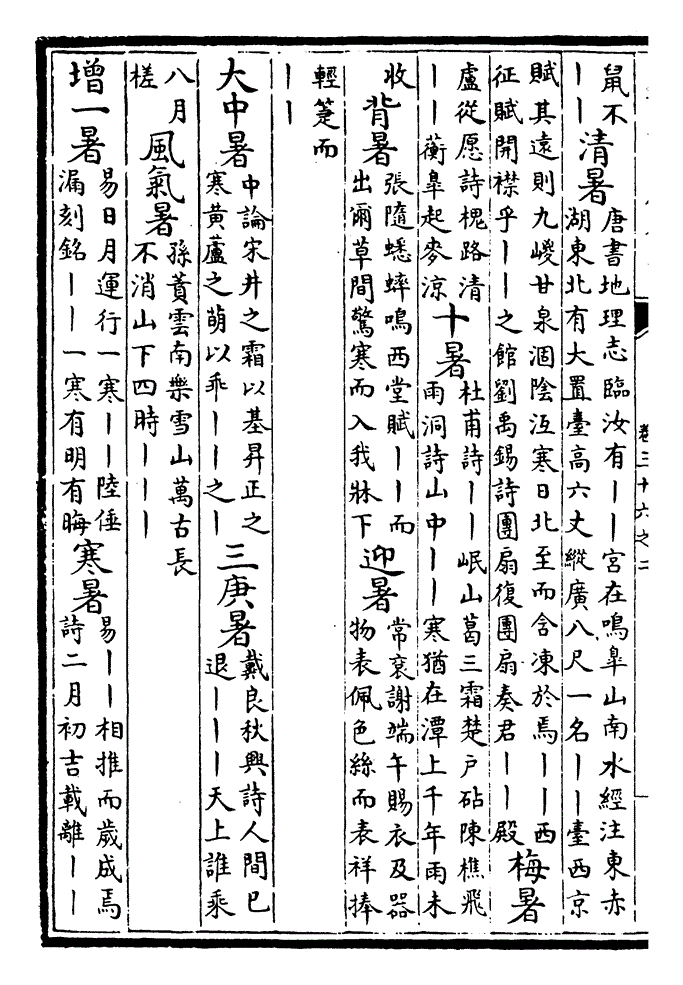 卷三十六之二
鼠不
｜｜
清暑
唐書地理志臨汝有｜｜宮在鳴皋山南水經注東赤
湖東北有大置臺高六丈縱廣八尺一名｜｜臺西京
賦其遠則九嵕甘泉涸陰沍寒日北至而含凍於焉｜｜西
征賦開襟乎｜｜之館劉禹錫詩團扇復團扇奏君｜｜殿
梅暑
盧從愿詩槐路清
｜｜蘅皋起麥涼
十暑
杜甫詩｜｜岷山葛三霜楚戶砧陳樵飛
雨洞詩山中｜｜寒猶在潭上千年雨未
收
背暑
張隨蟋蟀鳴西堂賦｜｜而
出爾草間驚寒而入我牀下
迎暑
常袞謝端午賜衣及器
物表佩色絲而表祥捧
輕箑而
｜｜
大中暑
中論宋井之霜以基昇正之
寒黃蘆之萌以乖｜｜之｜
三庚暑
戴良秋興詩人間已
退｜｜｜天上誰乘
八月
槎
風氣暑
孫蕡雲南樂雪山萬古長
不消山下四時｜｜｜
增一暑
易日月運行一寒｜｜陸倕
漏刻銘｜｜一寒有明有晦
寒暑
易｜｜相推而歲成焉
詩二月初吉載離｜｜